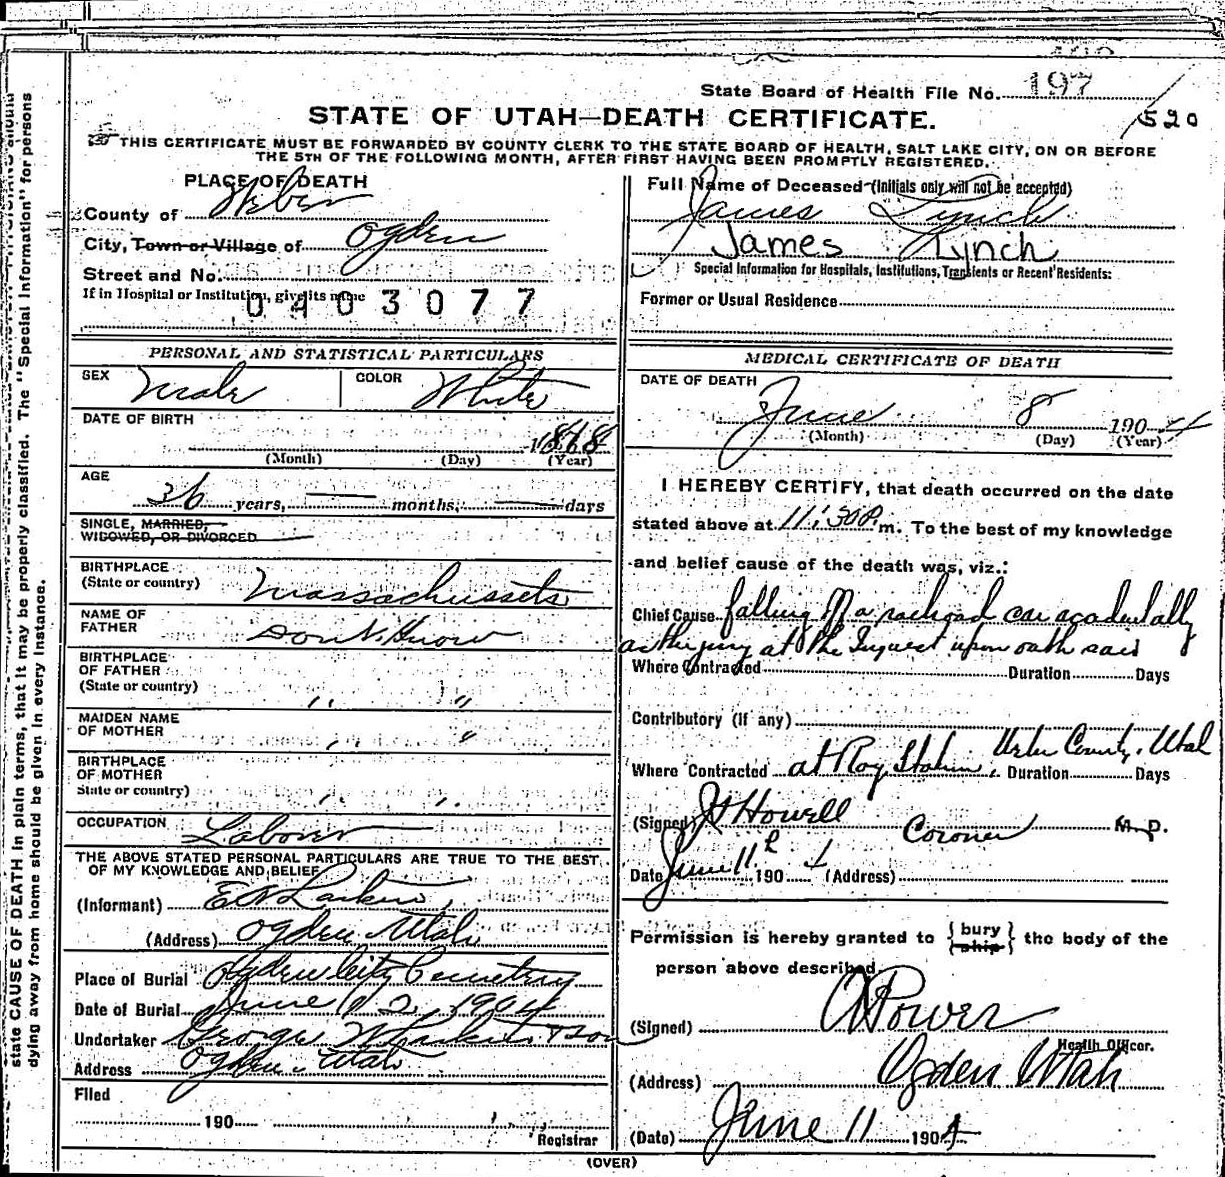 State Board of Health File No. 197
520
STATE OF UTAH—DEATH CERTIFICATE.
THIS CERTIFICATE MUST BE FORWARDED BY COUNTY CLERK TO THE STATE BOARD OF HEALTH, SALT LAKE CITY, ON OR BEFORE
THE 5TH OF THE FOLLOWING MONTH, AFTER FIRST HAVING BEEN PROMPTLY REGISTERED.
state CAUSE OF DEATH in plain terms, that it may be properly classified. The "Special Information" for persons
dying away from home should be given in every instance.
PLACE OF DEATH
County of Weber
City, Town or Village of Ogden
Street and No.
If in Hospital or Institution, give its name
0403077
PERSONAL AND STATISTICAL PARTICULARS
SEX Male COLOR White
DATE OF BIRTH
1868
(Month) (Day) (Year)
AGE
36 years, — months, — days
SINGLE, MARRIED,
WIDOWED, OR DIVORCED
BIRTHPLACE
(State or country) Massachussets
NAME OF
FATHER Don't Know
BIRTHPLACE
OF FATHER
(State or country) " "
MAIDEN NAME
OF MOTHER " "
BIRTHPLACE
OF MOTHER
State or country) " "
OCCUPATION Laborer
THE ABOVE STATED PERSONAL PARTICULARS ARE TRUE TO THE BEST
OF MY KNOWLEDGE AND BELIEF
(Informant) Larkin
(Address) Ogden Utah
Place of Burial Ogden City Cemetery
Date of Burial June 12, 1904
Undertaker George W Larkin & Son
Address Ogden Utah
Filed
190
Registrar
Full Name of Deceased (Initials only will not be accepted)
James Lynch
James Lynch
Special Information for Hospitals, Institutions, Transients or Recent Residents:
Former or Usual Residence
MEDICAL CERTIFICATE OF DEATH
DATE OF DEATH
June 8 1904
(Month) (Day) (Year)
I HEREBY CERTIFY, that death occurred on the date
stated above at 11:30 P. m. To the best of my knowledge
and belief cause of the death was, viz.:
Chief Cause falling off a railroad car accidentally
as the jury at the Inquest upon oath said
Where Contracted Duration Days
Contributory (if any)
Where Contracted at Roy Station, Weber County, Utah Duration Days
(Signed Howell Coroner M. D.
Date June 11 1904 (Address)
Permission is hereby granted to {bury ship} the body of the
person above described
(Signed) Power
Health Officer.
(Address) Ogden Utah
(Date) June 11 1904
(OVER)